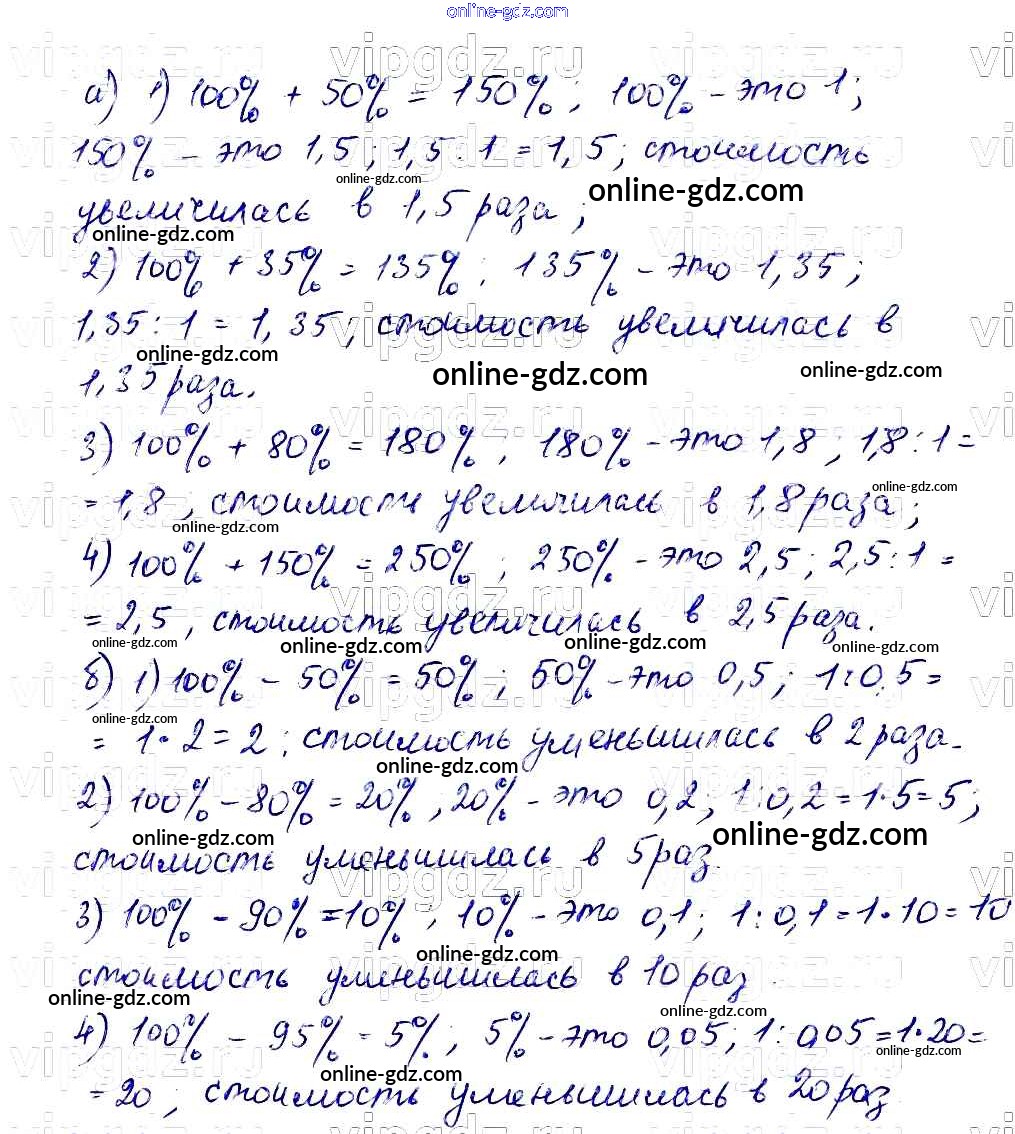 online-gdz.com
vipgdz.ru
а) 1) 100% + 50% = 150%; 100% – это 1;
150% – это 1,5; 1,5 : 1 = 1,5; стоимость
online-gdz.com
online-gdz.com
увеличилась в 1,5 раза;
online-gdz.com
2) 100% + 35% = 135%; 135% – это 1,35;
1,35 : 1 = 1,35; стоимость увеличилась в
online-gdz.com
online-gdz.com
online-gdz.com
1,35 раза.
3) 100% + 80% = 180%; 180% – это 1,8; 1,8 : 1 =
= 1,8, стоимость увеличилась в 1,8 раза;
online-gdz.com
online-gdz.com
4) 100% + 150% = 250%; 250% – это 2,5; 2,5 : 1 =
= 2,5, стоимость увеличилась в 2,5 раза.
online-gdz.com
online-gdz.com
online-gdz.com
online-gdz.com
б) 1) 100% – 50% = 50%; 50% – это 0,5; 1 : 0,5 =
online-gdz.com
= 1 · 2 = 2; стоимость уменьшилась в 2 раза.
online-gdz.com
2) 100% – 80% = 20%, 20% – это 0,2; 1 : 0,2 = 1 · 5 = 5;
online-gdz.com
online-gdz.com
стоимость уменьшилась в 5 раз.
3) 100% – 90% = 10%, 10% – это 0,1; 1 : 0,1 = 1 · 10 = 10
online-gdz.com
стоимость уменьшилась в 10 раз.
online-gdz.com
online-gdz.com
4) 100% – 95% = 5%; 5% – это 0,05; 1 : 0,05 = 1 · 20 =
online-gdz.com
online-gdz.com
= 20; стоимость уменьшилась в 20 раз